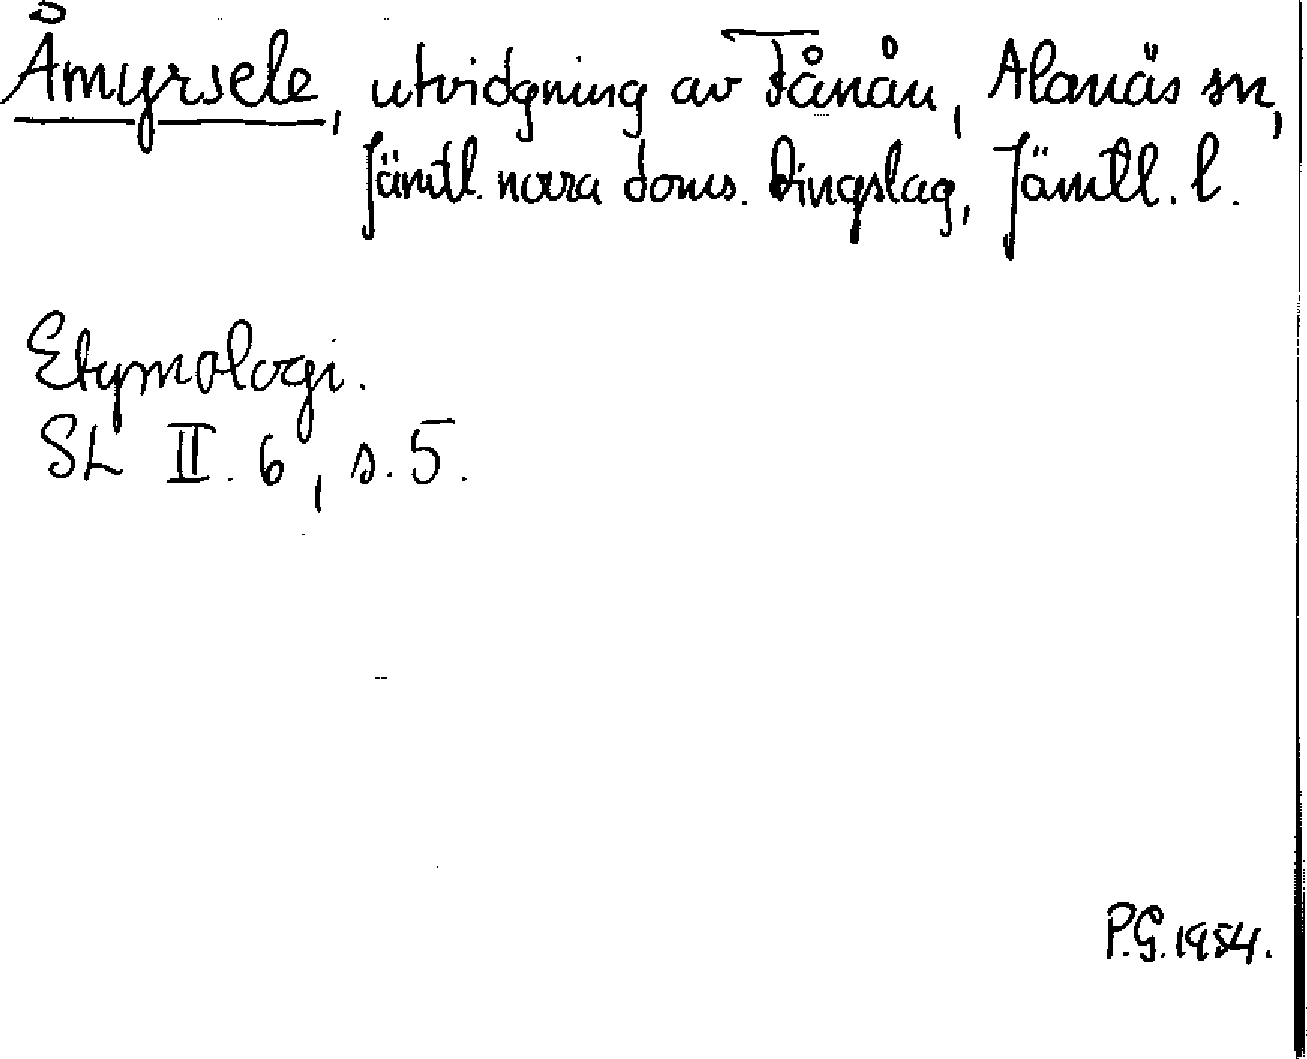 Åmyrsele, utvidgning av Fånån, Alanäs sn,
Jämtl. norra doms. tingslag, Jämtl. l.
Etymologi.
SL II. 6, s. 5.
P.G. 1954.